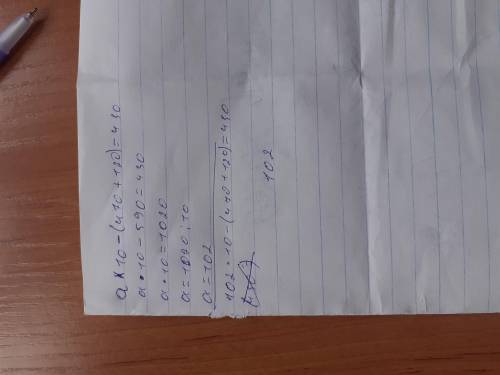 a × 10 - (410 + 180) = 430
a · 10 - 590 = 430
a · 10 = 1020
a = 1020 : 10
a = 102
102 · 10 - (410 + 180) = 430
102